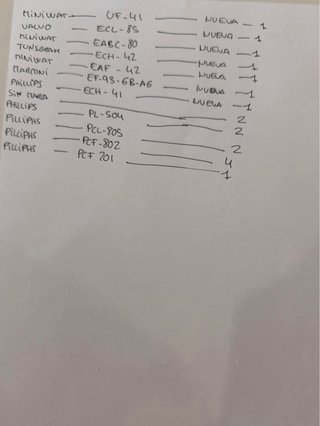 MINIWAT — UF-41 — NUEVA — 1
VALVO — ECL-85 — NUEVA — 1
MINIWAT — EABC-80 — NUEVA — 1
TUNSGRAM — ECH-42 — NUEVA — 1
MINIWAT — EAF-42 — NUEVA — 1
MARCONI — EF-93-6B-A6 — NUEVA — 1
PHILIPS — ECH-41 — NUEVA — 1
SIN MARCA — 2
PHILLIPS — PL-504 — 2
PILLIPHS — PCL-805 — 2
PILLIPHS — PCF-802 — 4
PILLIPHS — PCF 201 — 1